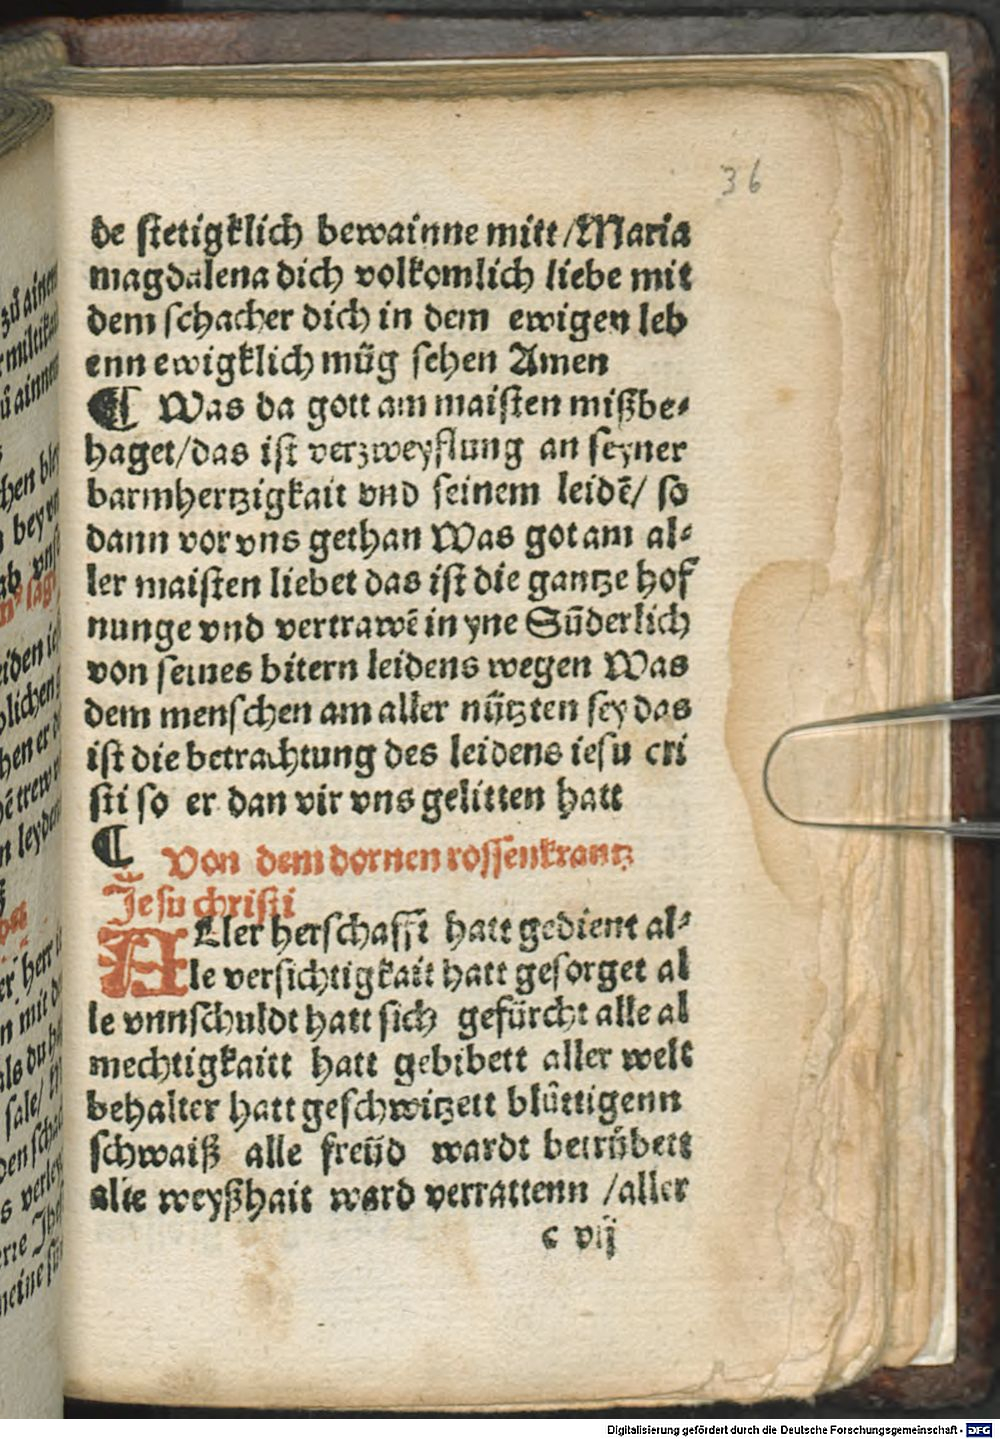 36
de stetigklich bewainne mitt/Maria
magdalena dich volkomlich liebe mit
dem schacher dich in dem ewigen leb
enn ewigklich müg sehen Amen
¶ Was da gott am maisten mißbe⸗
haget/das ist verzweyflung an seyner
barmhertzigkait vnd seinem leidē/ so
dann vor vns gethan Was got am al⸗
ler maisten liebet das ist die gantze hof
nunge vnd vertrawē in yne Sūderlich
von seines bitern leidens wegen Was
dem menschen am aller nützten sey das
ist die betrachtung des leidens iesu cri
sti so er dan vir vns gelitten hatt
¶ Von dem dornen rossenkrantz
Jesu christi
ALler herschafft hatt gedient al⸗
le versichtigkait hatt gesorget al
le vnnschuldt hatt sich gefürcht alle al
mechtigkaitt hatt gebibett aller welt
behalter hatt geschwitzett blůttigenn
schwaiß alle freüd wardt betrübett
alle weyßhait ward verrattenn /aller
c vij
Digitalisierung gefördert durch die Deutsche Forschungsgemeinschaft - DFG